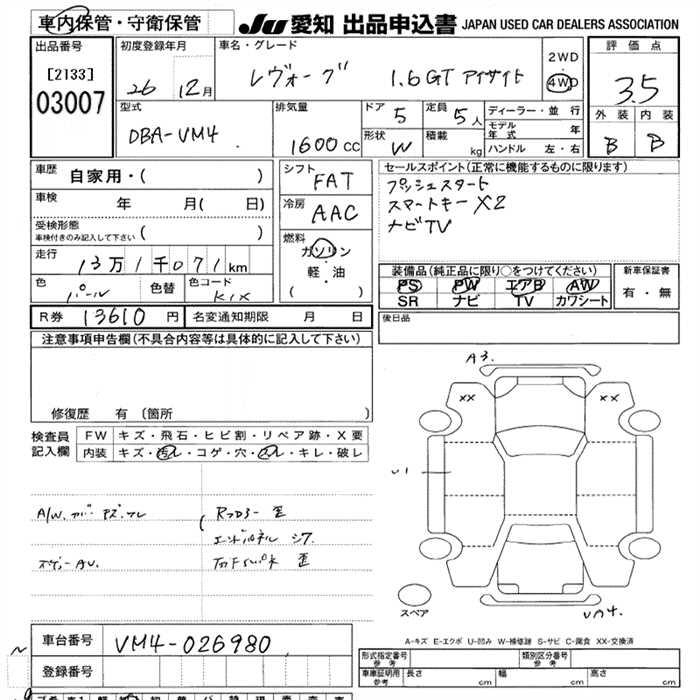 車内保管・守衛保管
JU 愛知 出品申込書 JAPAN USED CAR DEALERS ASSOCIATION
出品番号 [2133] 03007
初度登録年月 26 12月
車名・グレード レヴォーグ 1.6GT アイサイト
2WD 4WD
評価点 3.5
外装 B 内装 B
型式 DBA-VM4
排気量 1600cc
ドア 5 定員 5人
形状 W 積載 kg
ディーラー・並行
モデル年式 年
ハンドル 左・右
車歴 自家用・( )
車検 年 月( 日)
受検形態 車検付きのみ記入して下さい ( )
走行 13万1千071km
色 パール 色替 色コード K1X
シフト FAT
冷房 AAC
燃料 ガソリン 軽・油 ( )
セールスポイント(正常に機能するものに限ります)
プッシュスタート
スマートキー X2
ナビTV
装備品(純正品に限り○をつけてください)
PS PW エアB AW
SR ナビ TV カワシート
新車保証書 有・無
R券 13610円 名変通知期限 月 日
後日品
注意事項申告欄(不具合内容等は具体的に記入して下さい)
修復歴 有 (箇所 )
検査員記入欄
FW キズ・飛石・ヒビ割・リペア跡・X要
内装 キズ・汚レ・コゲ・穴・スレ・キレ・破レ
A3.
XX XX
U1
スペア
A-キズ E-エクボ U-凹み W-補修跡 S-サビ C-腐食 XX-交換済
車台番号 VM4-026980
登録番号
形式指定番号 参考 類別区分番号 参考
車庫証明用 参考 長さ cm 幅 cm 高さ cm